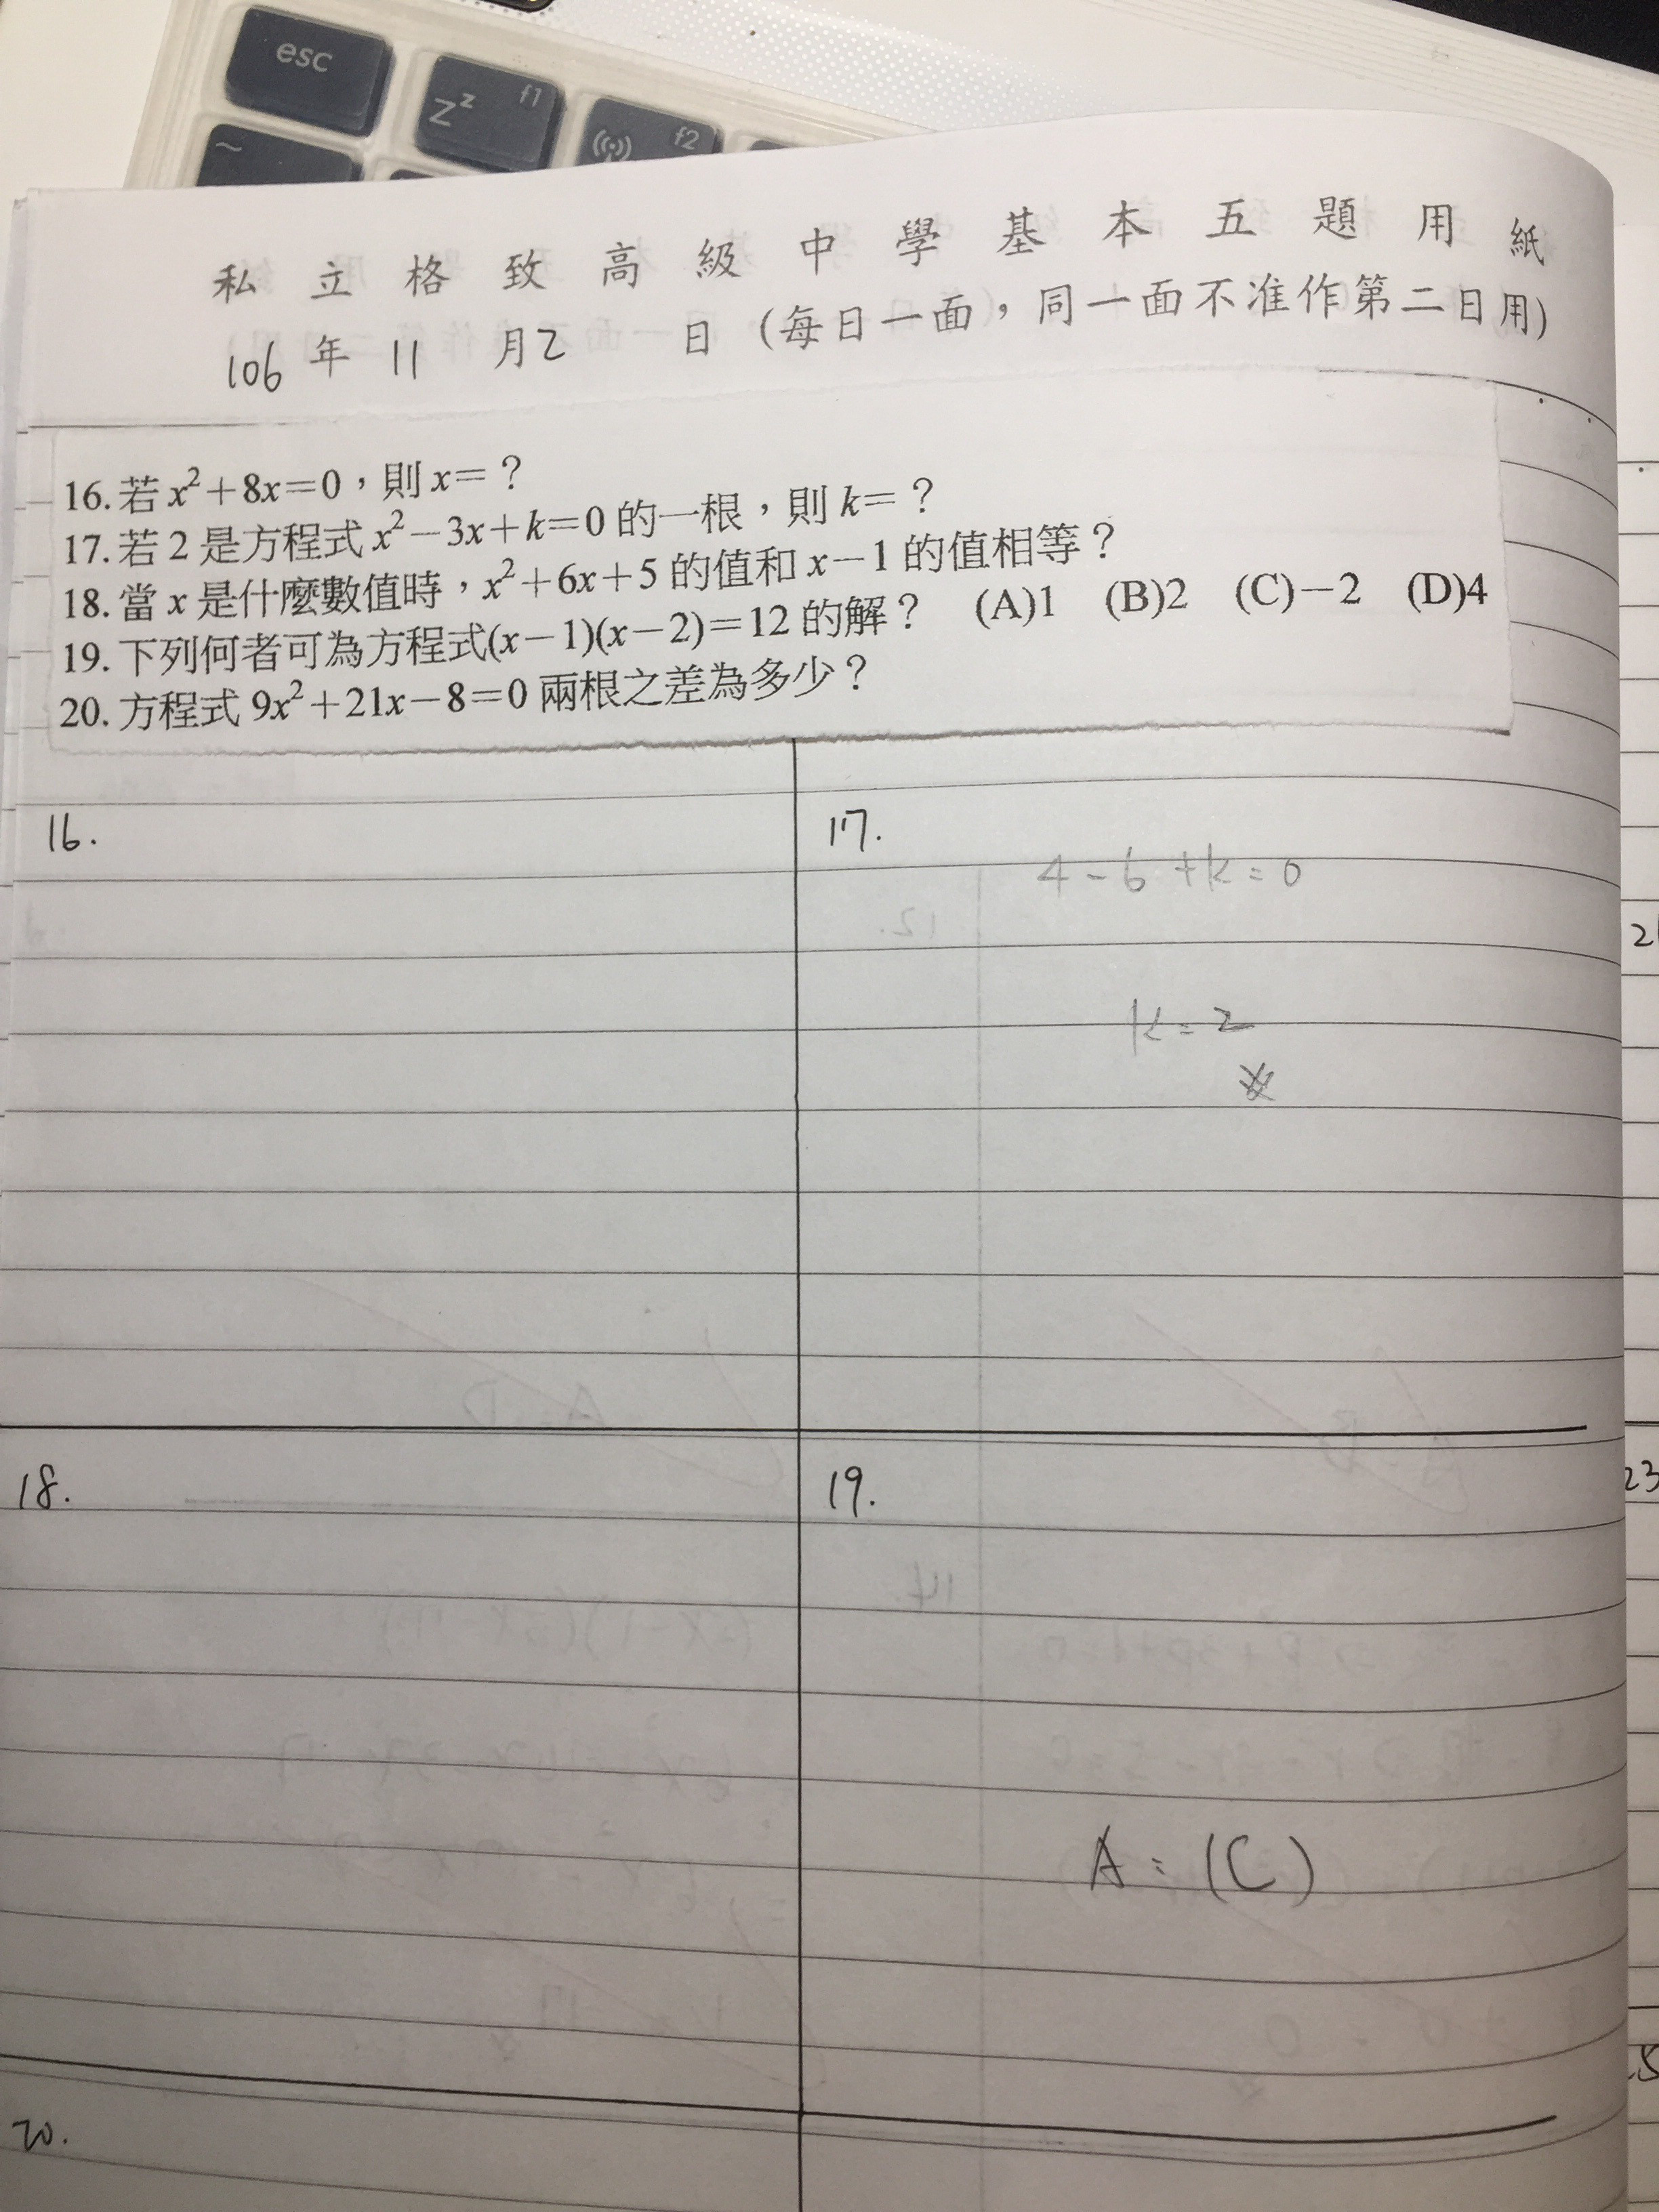 esc
Zz f1
f2
~
私立格致高級中學基本五題用紙
106年11月2日(每日一面，同一面不准作第二日用)
16.若x²+8x=0，則x=？
17.若2是方程式x²-3x+k=0的一根，則k=？
18.當x是什麼數值時，x²+6x+5的值和x-1的值相等？
19.下列何者可為方程式(x-1)(x-2)=12的解？ (A)1 (B)2 (C)-2 (D)4
20.方程式9x²+21x-8=0兩根之差為多少？
16.
17.
4-6+k=0
k=2
18.
19.
A:(C)
20.
23